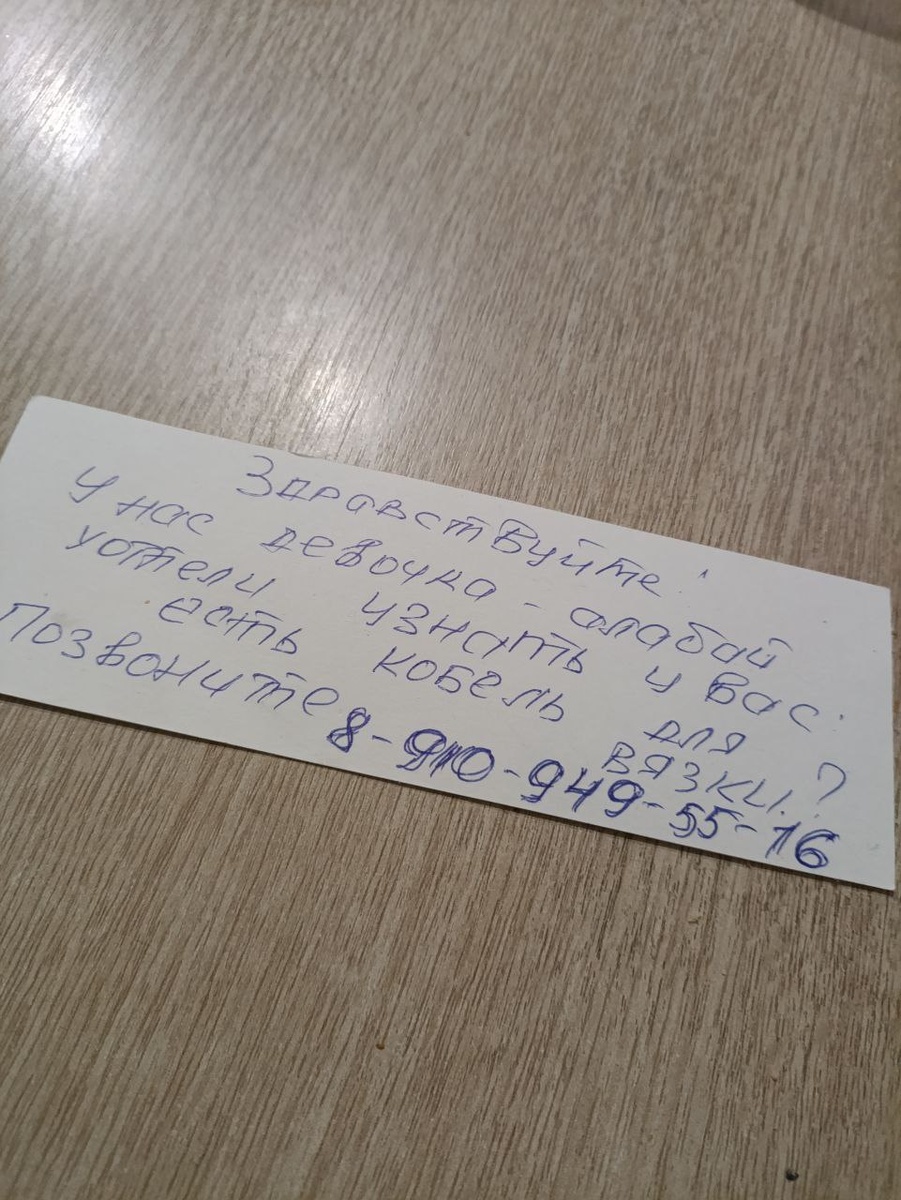 Здравствуйте!
У нас девочка - алабай
хотели узнать у вас.
есть кобель для
вязки?
Позвоните 8-910-949-55-16